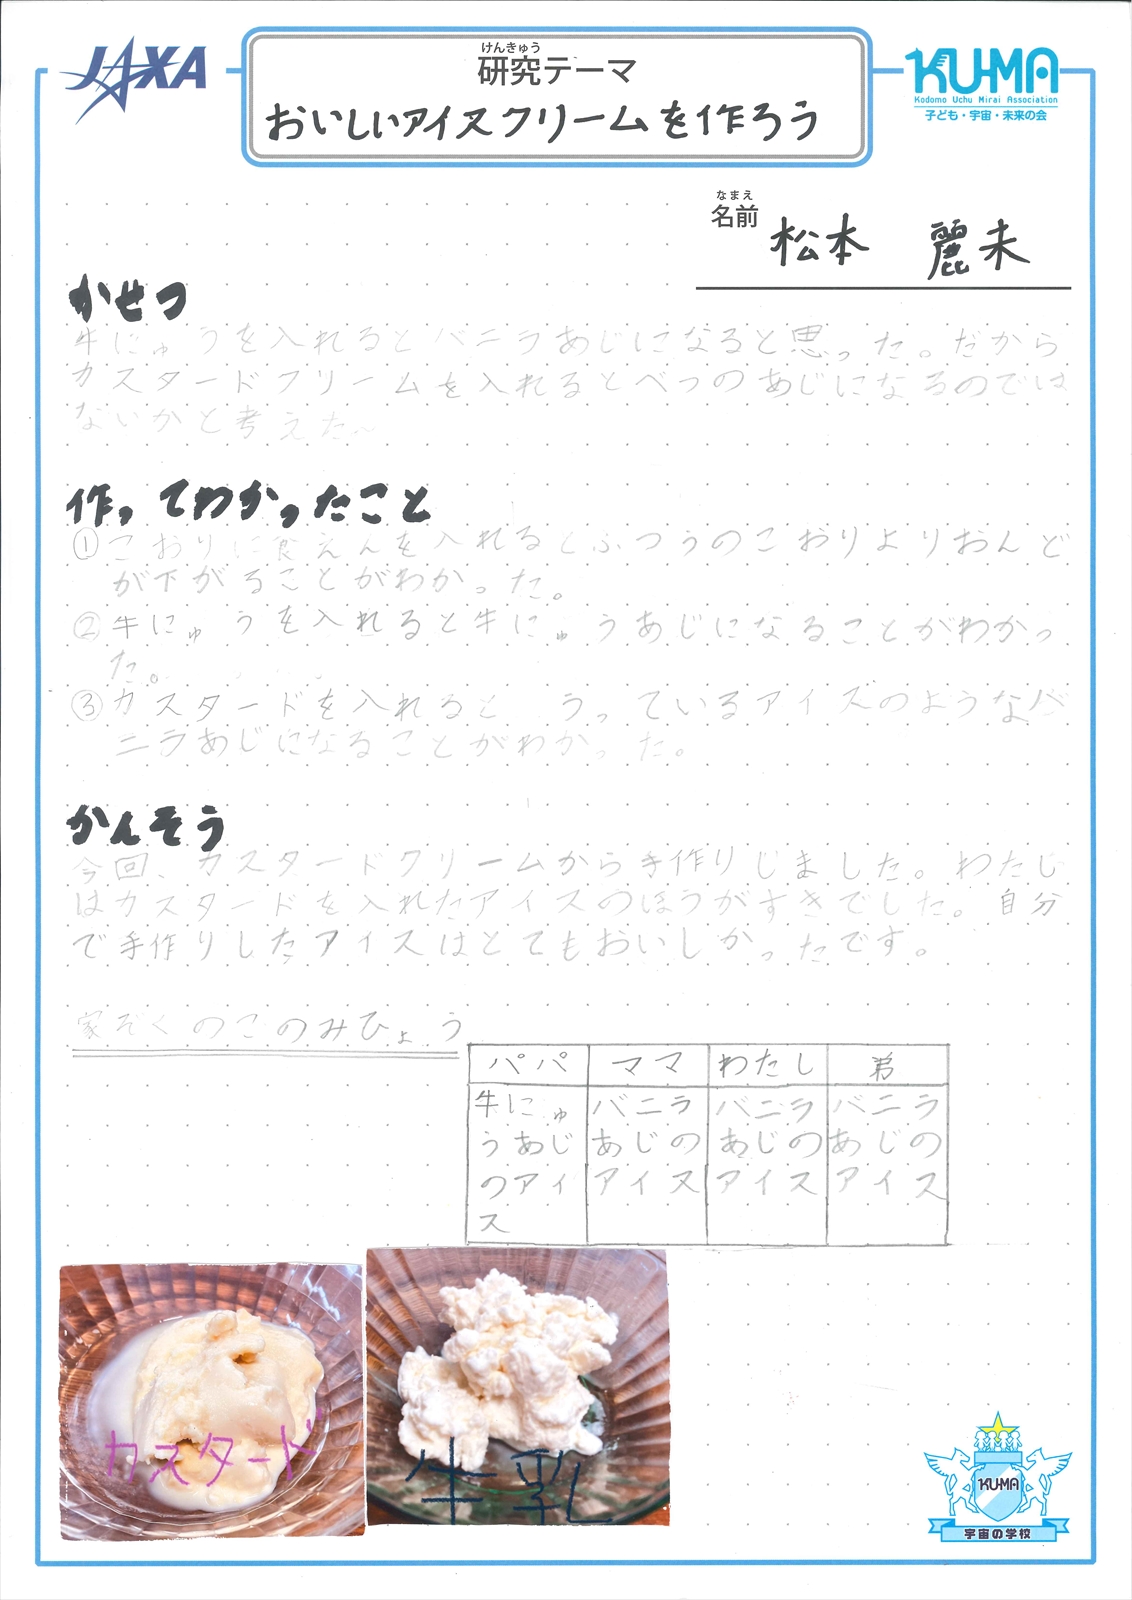 JAXA
けんきゅう
研究テーマ
おいしいアイスクリームを作ろう
KU-MA
Kodomo Uchu Mirai Association
子ども・宇宙・未来の会
なまえ
名前 松本 麗未
かせつ
牛にゅうを入れるとバニラあじになると思った。だから
カスタードクリームを入れるとべつのあじになるのでは
ないかと考えた。
作ってわかったこと
①こおりに食えんを入れるとふつうのこおりよりおんど
が下がることがわかった。
②牛にゅうを入れると牛にゅうあじになることがわかっ
た。
③カスタードを入れると うっているアイスのようなバ
ニラあじになることがわかった。
かんそう
今回、カスタードクリームから手作りしました。わたし
はカスタードを入れたアイスのほうがすきでした。自分
で手作りしたアイスはとてもおいしかったです。
家ぞくのこのみひょう
パパ ママ わたし 弟
牛にゅ バニラ バニラ バニラ
うあじ あじの あじの あじの
のアイ アイス アイス アイス
ス
カスタード
牛乳
KU-MA
宇宙の学校